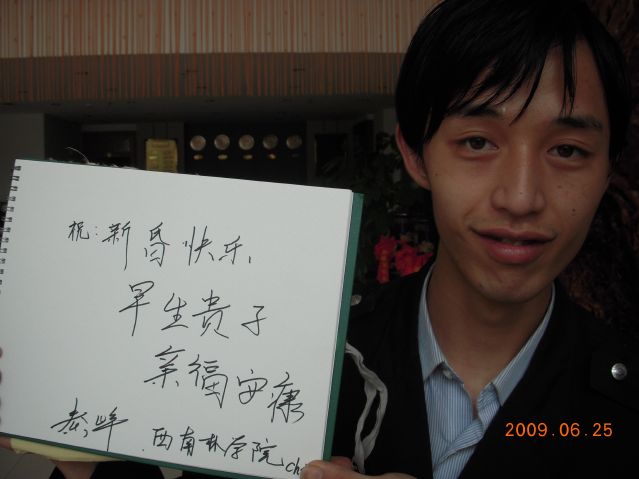 祝:新昏快乐,
早生贵子
幸福安康
彭峰 .西南林学院 ch
2009.06.25